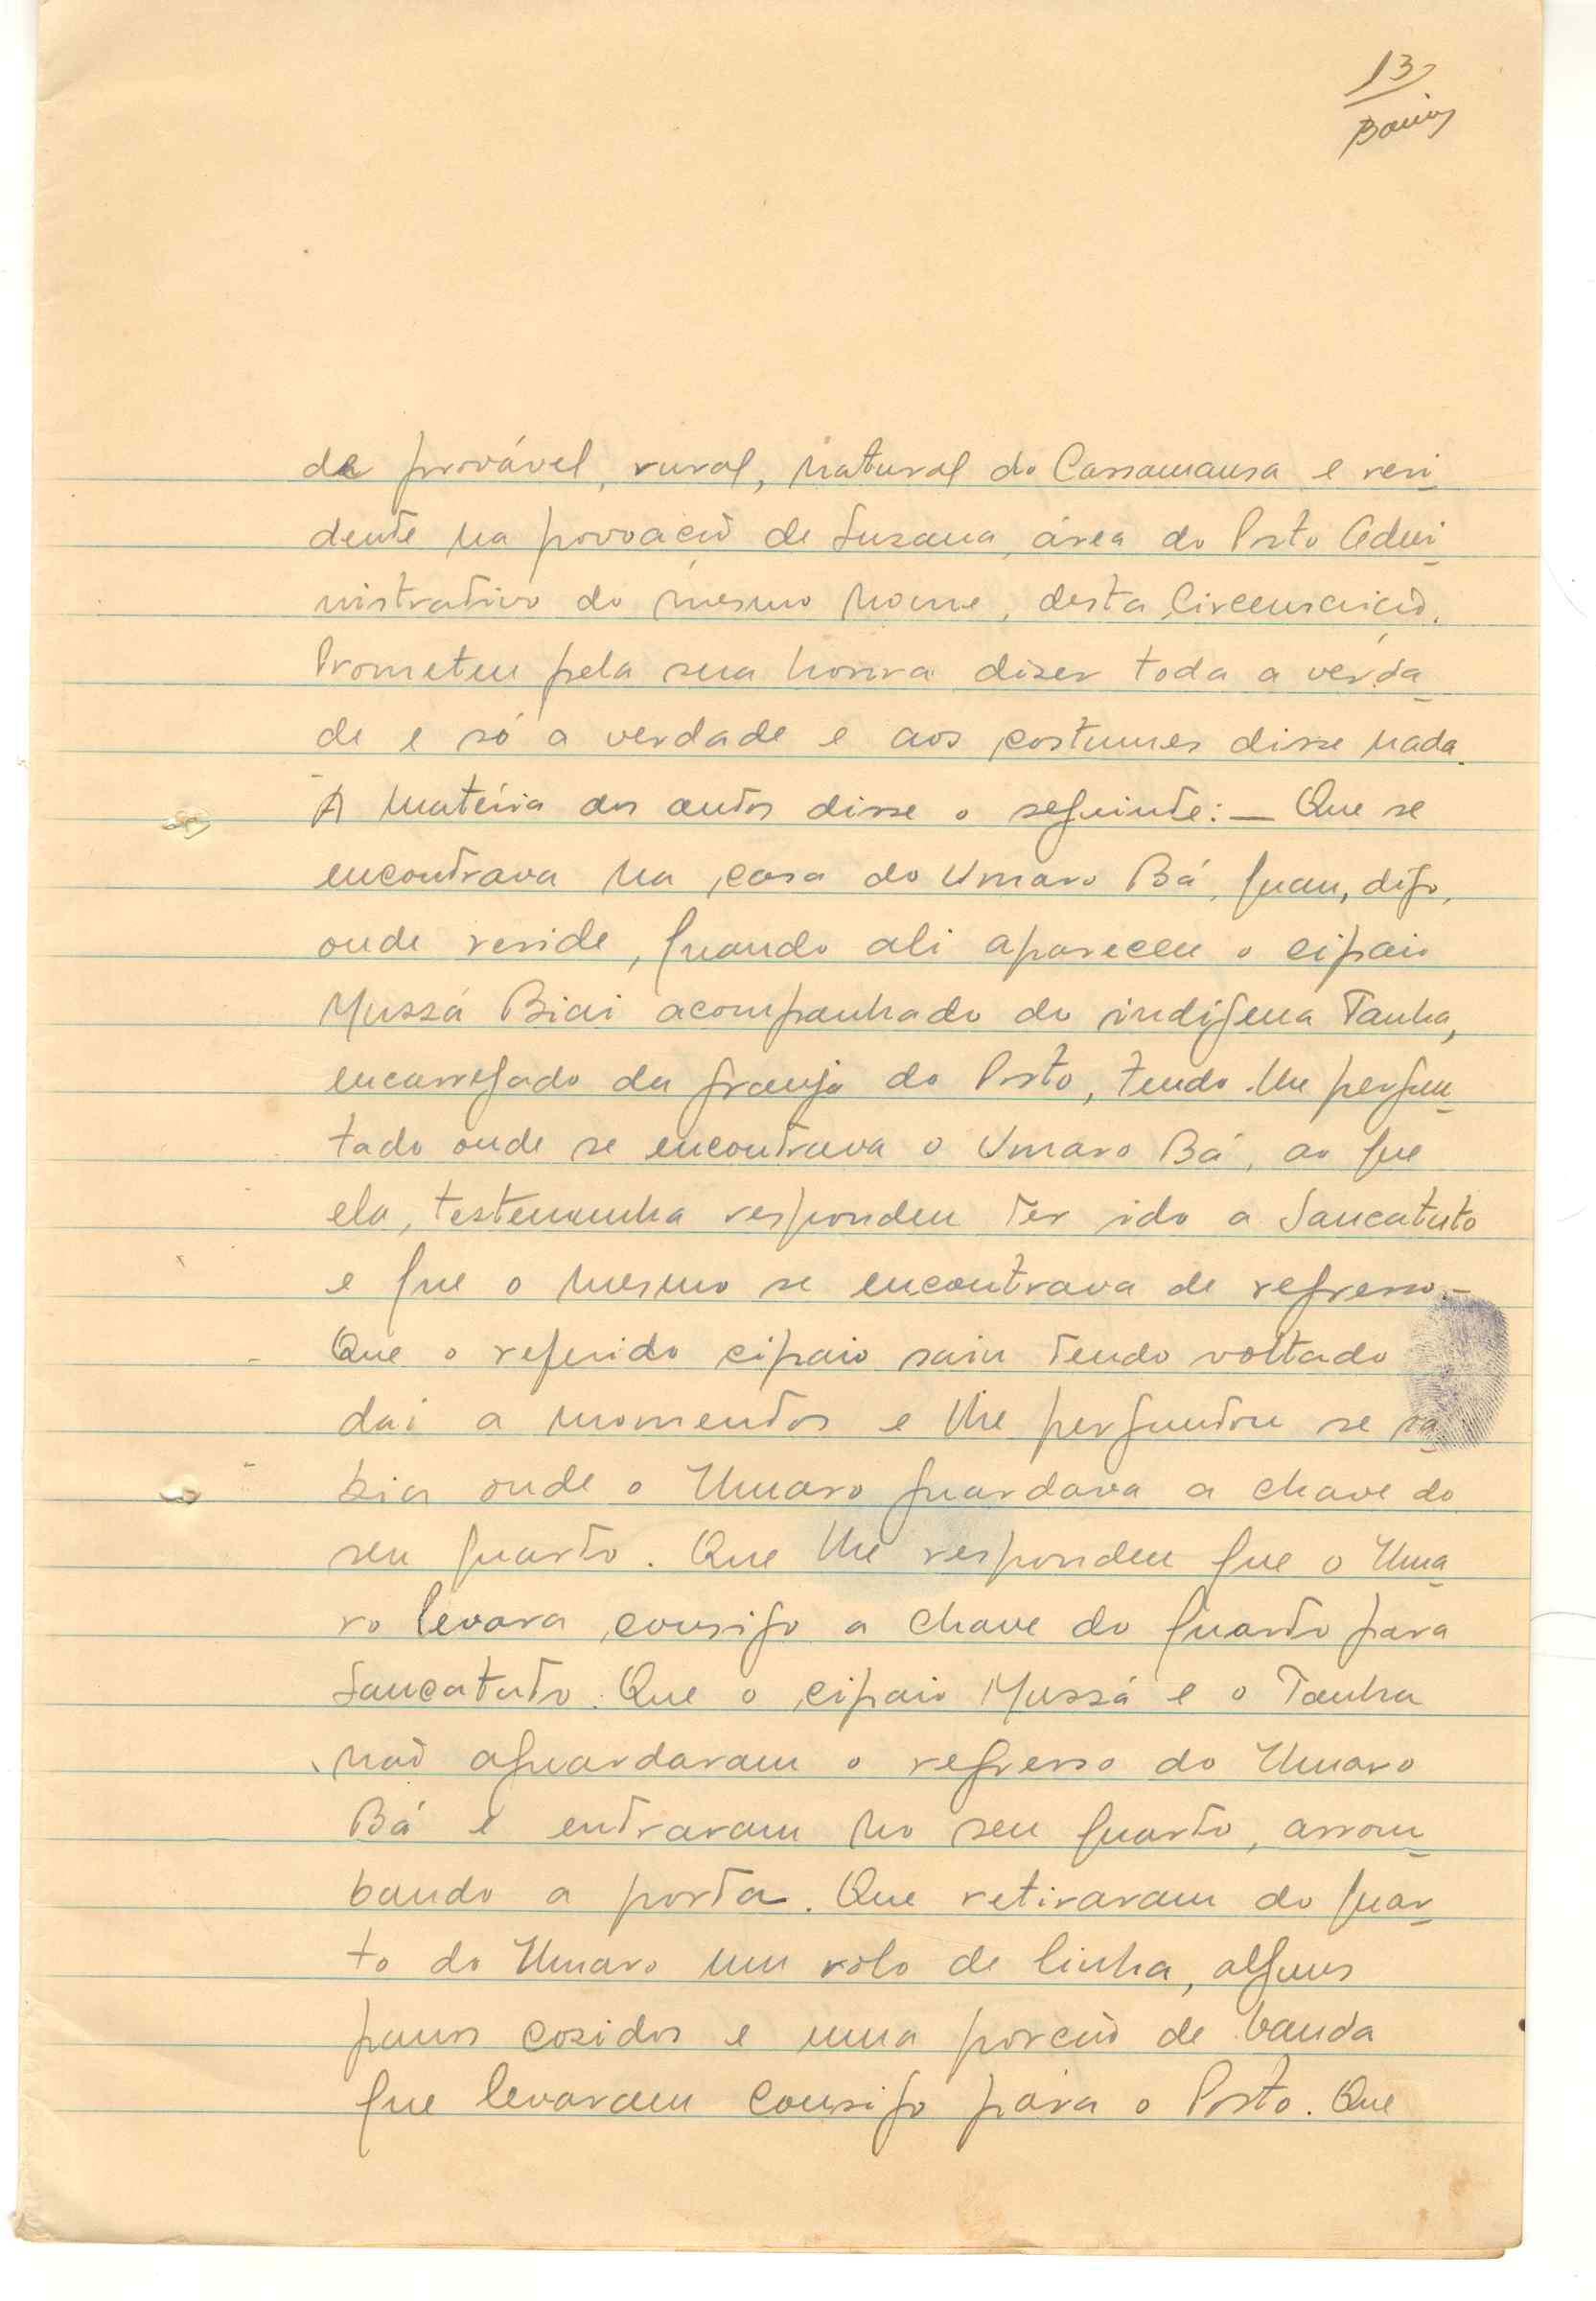 13
de provável, rural, natural do Cassamansa e resi-
dente na povoação de Susana, área do Posto Admi-
nistrativo do mesmo nome, desta Circunscrição.
Prometeu pela sua honra dizer toda a verda-
de e só a verdade e aos costumes disse nada.
Á matéria dos autos disse o seguinte: — Que se
encontrava na casa do Umaro Bá, quan, digo,
onde reside, quando ali apareceu o cipaio
Mussá Biai acompanhado do indígena Tanha,
encarregado da granja do Posto, tendo-lhe pergun-
tado onde se encontrava o Umaro Bá, ao que
ela, testemunha respondeu ter ido a Sancatuto
e que o mesmo se encontrava de regresso.-
Que o referido cipaio saiu tendo voltado
dai a momentos e lhe perguntou se sa-
bia onde o Umaro guardava a chave do
seu quarto. Que lhe respondeu que o Uma-
ro levara consigo a chave do quarto para
Sancatuto. Que o cipaio Mussá e o Tanha
não aguardaram o regresso do Umaro
Bá e entraram no seu quarto, arrom-
bando a porta. Que retiraram do quar-
to do Umaro um rolo de linha, alguns
panos cosidos e uma porção de banda
que levaram consigo para o Posto. Que